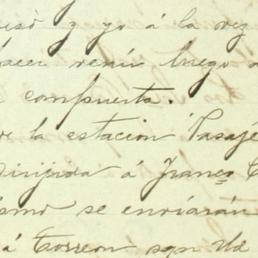 y yo á la vez
hacer venir luego
compuerta.
la estacion Pasaje
Dirijida á Franco
se enviarán
á Torreon